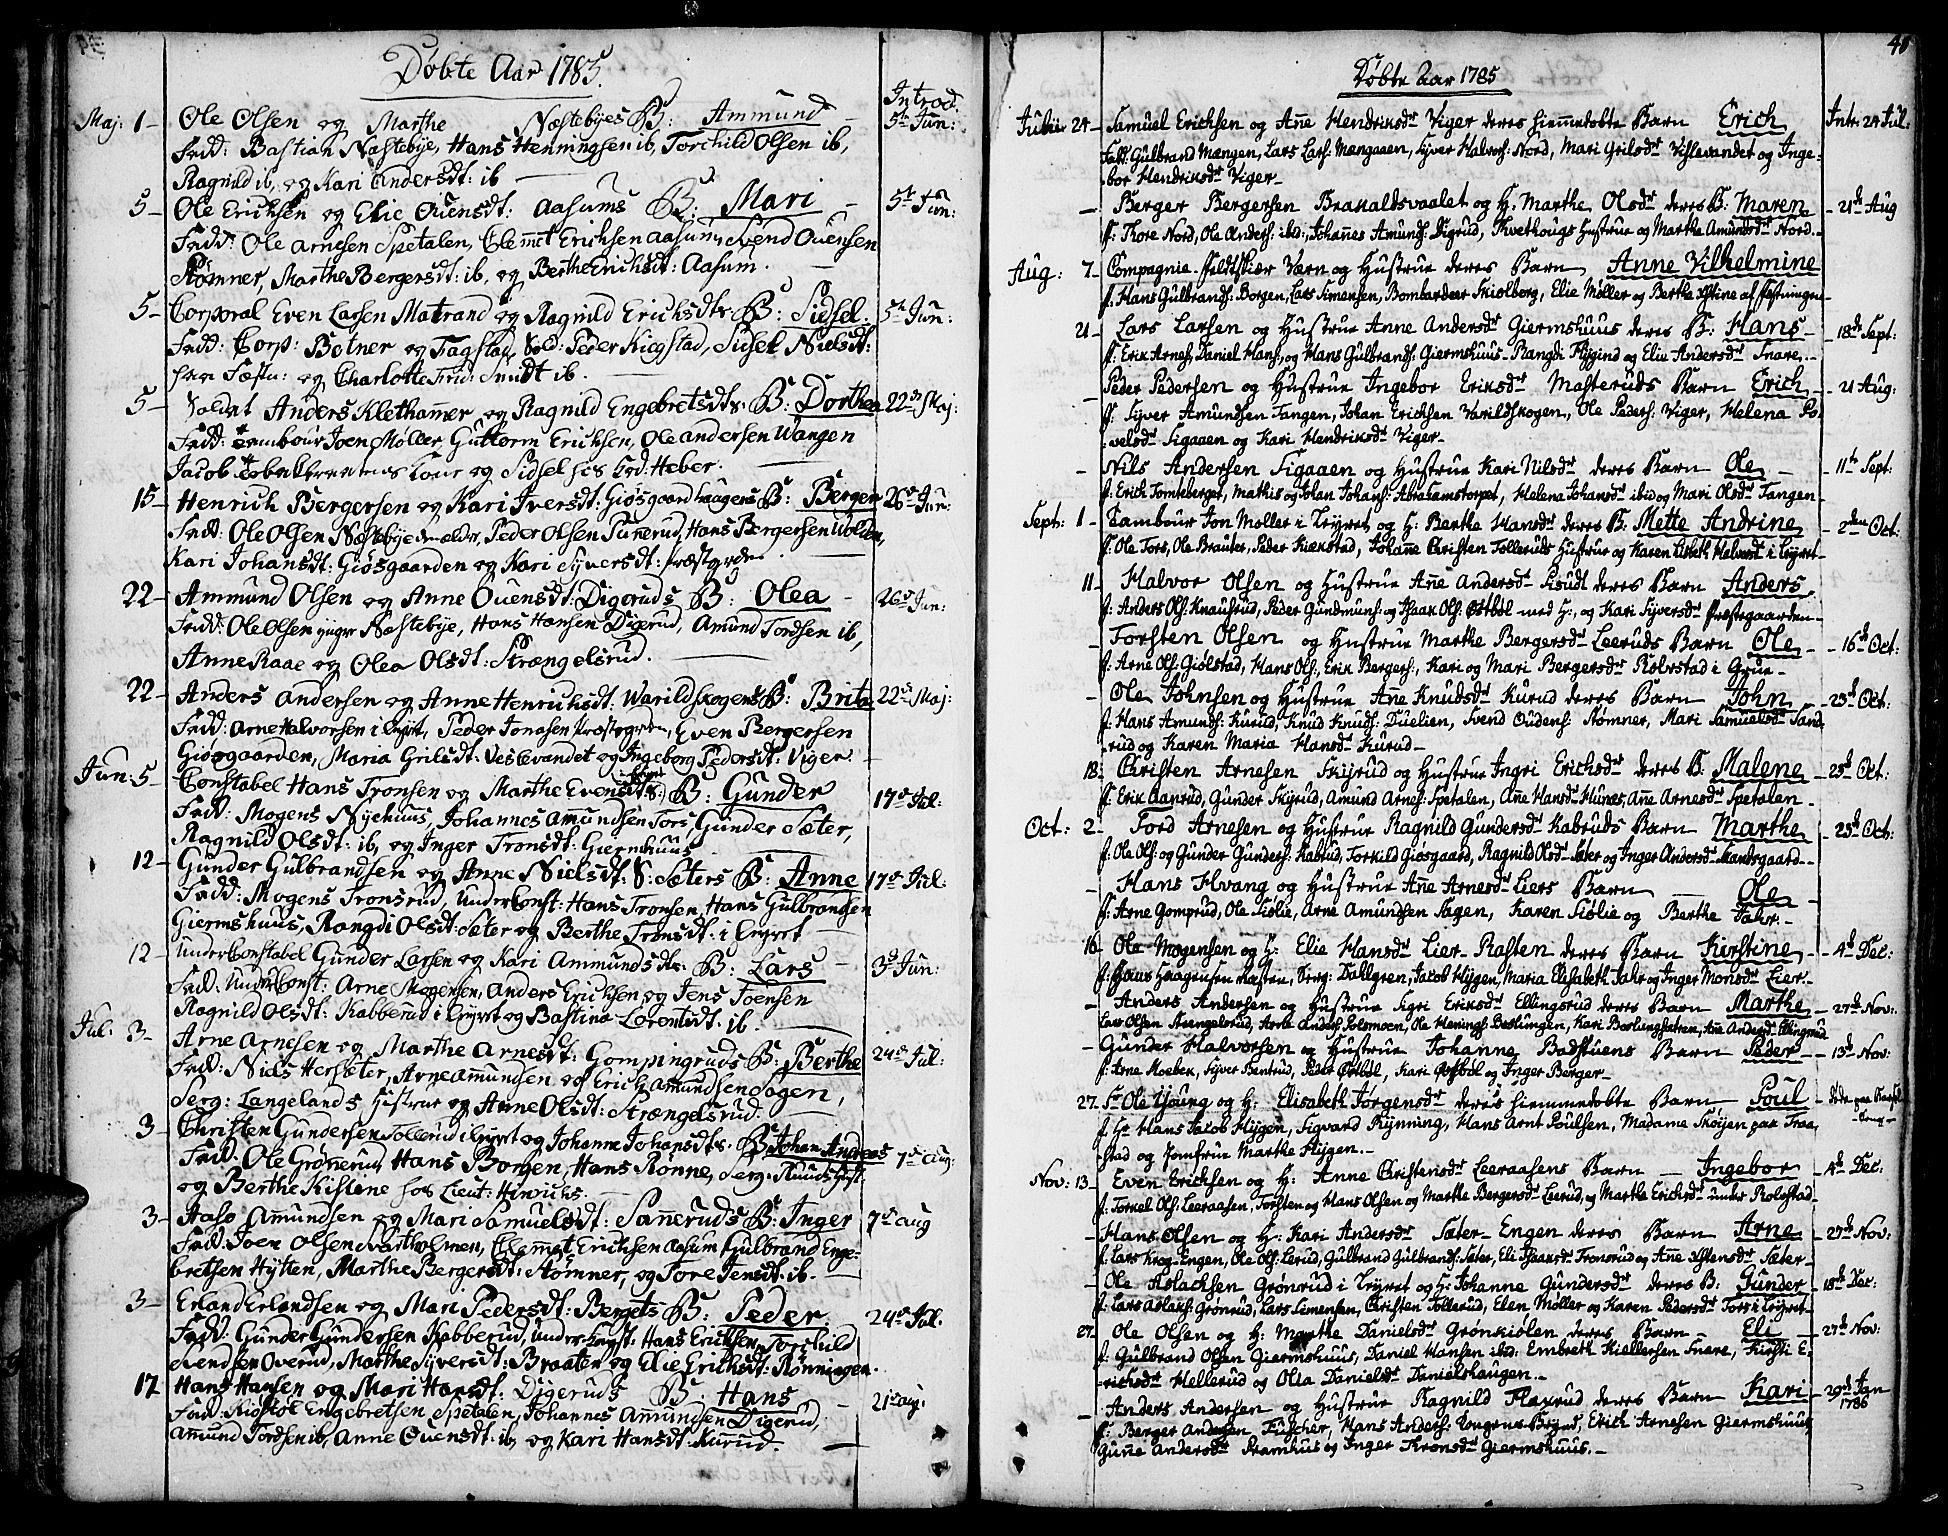 Døbte Aar 1785.
Introd.
Maj: 1 - Ole Olsen og Marthe Næstebyes B: Ammund - 5t Jun:
Fadd: Bastian Næstebye, Hans Henningsen ib, Torchild Olsen ib,
Ragnild ib, og Kari Andersdt: ib
5 - Ole Ericksen og Elie Ouensdt: Aasums B: Mari - 5t Jun:
Fadd: Ole Arnesen Spetalen, Clemmet Ericksen Aasum, Svend Ouensen
Stømner, Marthe Bergersdt: ib, og Berthe Erichsdt: Aasum.
5 - Corporal Even Larsen Matrand og Ragnild Ericksdtr. B: Sidsel. 5t Jun:
Fadd: Corp: Botner og Fagstad, Sold: Peder Kiegstad, Sidsel Nielsdt:
paa Fæstn: og Charlotte Frid: Smidt ib.
5 - Soldat Anders Klethamer og Ragnild Engebretsdtr. B: Dorthea 22d Maj:
Fadd: Tambour Joen Møller, Guttorm Ericksen, Ole Andersen Wangen
Jacob Kone og Sidsel hos Heber.
15 - Henrich Bergersen og Kari Iversdt: Giøsgaardhaugens B: Berger 26d Jun:
Fadd: Ole Olsen Næstebye ælder, Peder Olsen Punerud, Hans Bergersen Wolden,
Kari Johansdt: Giøsgaarden og Kari Syversdt: Præstgrden.
22 - Ammund Olsen og Anne Ouensdt: Digeruds B: Olea - 26d Jun:
Fadd: Ole Olsen ynger Næstebye, Hans Hansen Digerud, Amund Tordsen ib,
Anne Raae og Olea Olsdt: Strængelsrud.
22 - Anders Andersen og Anne Henrichsdt: Warildskogens B: Brita 22d Maj:
Fadd: Arne Halvorsen i Leyret, Peder Jonasen Præstegrden, Even Bergersen
Giøsgaarden, Maria Grilsdt: Vestevandet og Ingeborg Pedersdt: Viger
Jun: 5 - Constabel Hans Tronsen og Marthe Evensdtr. i Leyret B: Gunder 17d Jul:
Fadd: Mogens Nyehuus, Johannes Amundsen Tors, Gunder Sæter,
Ragnild Olsdt: ib, og Inger Tronsdt: Giermshuus
12 - Gunder Gulbrandsen og Anne Nielsdt: S: Sæters B: Anne 17d Jul:
Fadd: Mogens Tronsrud, Under Const: Hans Tronsen, Hans Gulbrandsen
Giermshuus, Rangdi Olsdt: Sæter og Berthe Tronsdt: i Leyret
12 - Under Constabel Gunder Larsen og Kari Ammundsdtr. B: Lars 3d Jun:
Fadd: Under Const: Arne Mogensen, Anders Ericksen og Jens Joensen
Ragnild Olsdt: Kabberud i Leyret og Bastina Lorentsdt: ib.
Jul: 3 - Arne Arnesen og Marthe Arnesdt: Gompingruds B: Berthe 24d Jul:
Fadd: Niels Hersæter, Arne Amundsen og Erich Amundsen Sagen,
Serg: Langelands Hustrue og Anne Olsdt: Strængelsrud
3 - Christen Gundersen Tollerud i Leyret og Johanne Johansdtr. B: Johan Andreas 7d Aug:
Fadd: Ole Grønnerud, Hans Borgen, Hans Rønne, Serg: Ruuds Hust:
og Berthe Kistine hos Lieut: Hinrichs.
3 - Aase Amundsen og Mari Samuelsdt: Sanneruds B: Inger 7d Aug
Fadd: Joen Olsen Svartholmen, Clemmet Ericksen Aasum, Gulbrand Enge-
bretsen Hytten, Marthe Bergersdt: Stømner, og Tore Jensdt: ib.
3 - Erland Erlandsen og Mari Pedersdt: Bergets B: Peder 24d Jul.
Fadd: Gunder Gundersen Kabberud, Under Const: Hans Ericksen, Torchild
Svendsen Overud, Marthe Syversdt: Braaten og Elie Ericksdt: Rønningen.
17 Hans Hansen og Mari Hansdt: Digeruds B: Hans - 21d Aug:
Fadd: Kiøstol Engebretsen Spetalen, Johannes Amundsen Digerud,
Amund Tordsen ib, Anne Ouensdt: ib, og Kari Hansdt: Kurud.
Døbte Aar 1785
Julii 24 - Samuel Erichsen og Anne Hendriksdr Viger deres hiemmedøbte Barn Erich Intr: 24 Jul:
Fadd: Gulbrand Mængen, Lars Lars: Mængaaen, Syver Halvors: Nord, Mari Grilsdr Vislevandet og Inge-
bor Hendriksdr Viger
- Berger Bergersen Brakaldsvaalet og H: Marthe Olsdr deres B: Maren - 21d Aug
f: Thore Nord, Ole Anders: ibid:, Johannes Amunds: Digrud, Tvethougs Hustrue og Marthe Amundsdr Nord.
Aug: 7 - Compagnie-Feldtskiær Værn og Hustrue deres Barn Anne Vilhelmine
f: Hans Gulbrands: Borgen, Lars Simensen, Bombardeer Skiolberg, Elie Møller og Berthe Xstine af Festningen
21 - Lars Larsen og Hustrue Anne Andersdr Giermshuus deres B: Hans - 18d Sept:
f: Erik Arnes: Daniel Hans:, og Hans Gulbrands: Giermshuus, Rangdi Flygind og Elie Andersdr Snare.
Peder Pedersen og Hustrue Ingebor Eriksdr Masteruds Barn Erich - 21 Aug:
f: Syver Amundsen Tangen, Johan Erichsen Varildskogen, Ole Peders: Viger, Helena Po-
velsdr Sigaaen og Kari Hendriksdr Viger
- Nils Andersen Sigaaen og Hustrue Kari Nilsdr deres Barn Ole - 11te Sept:
f: Erich Tomteberget, Mathis og Johan Johans: Abrahamstorpet, Helena Johansdr ibid og Mari Olsdr Tangen
Sept: 1 - Tambour Jon Møller i Leyret og H: Berthe Hansdr deres B: Mette Andrine - 2den Oct:
f: Ole Tors, Ole Brauter, Peder Kiekstad, Johane Christen Tolleruds Hustrue og Karen Lisbeth Halvorsdr i Leyret
11 - Halvor Olsen og Hustrue Ane Andersdr Sisudt deres Barn Anders
f: Anders Ols: Knausrud, Peder Gundmunds: og Isaak Ols: Østbøl med H:, og Kari Syversdr Præstegaarden
- Torsten Olsen og Hustrue Marthe Bergersdr Leeruds Barn Ole - 16d Oct:
f: Arne Ols: Giølstad, Hans Ols:, Erik Bergers:, Kari og Mari Bergersdr Rolvstad i Grue
- Ole Johnsen og Hustrue Ane Knudsdr Kurud deres Barn John - 23d Oct:
f: Hans Amunds: Kurud, Knud Knuds: Duelien, Svend Oudens: Stømner, Mari Samuelsdr Sand-
rud og Karen Maria Hansdr Kurud
18 - Christen Arnesen Skyrud og Hustrue Ingri Erichsdr deres B: Malene - 25d Oct:
f: Erik Aanrud, Gunder Skyrud, Amund Arnes: Spetalen, Ane Hansdr Hunæs, Ane Arnesdr Spetalen
Oct: 2 - Tord Arnesen og Hustrue Ragnild Gundersdr Kabruds Barn Marthe - 23d Oct:
f: Ole Ols: og Gunder Gunders: Kabrud, Torkild Giøsgaard, Ragnild Olsdr Sæter og Inger Andersdr Skandsgaard
- Hans Kvang og Hustrue Ane Arnesdr Liers Barn - Ole -
f: Arne Gomprud, Ole Siølie, Arne Amundsen Sagen, Karen Siølie og Berthe Fahr.
16 - Ole Mogensen og H: Elie Hansdr Lier-Rasten deres Barn Kirstine - 4d Dec:
f: Hans Haagensen Rasten, Serg: Dallgren, Jacob Hygen, Maria Elisabeth Fahr og Inger Monsdr Lier
- Anders Andersen og Hustrue Sigri Eriksdr Ellingsrud deres Barn Marthe - 27d Nov:
Lars Olsen Strengelsrud, Arne Anders: Polomoen, Ole Henings: Beslungen, Kari Beslungsætren, Ane Andersdr Ellingsrud
- Gunder Halvorsen og Hustrue Johanne Badstuens Barn Peder - 13d Nov:
f: Arne Moebek, Syver Bentrud, Peder Østbøl, Kari Østbøl og Inger Berger
27. Sr Ole Lyoung og H: Elisabeth Jørgensdr deres hiemmedøbte Barn Poul - døde paa
f: Hr Hans Jacob Hygen, Sigvard Rynning, Hans Arnt Poulsen, Madame Skøyen paa Fraa-
stad og Jomfrue Marthe Hygen.
Nov: 13 - Even Erichsen og H: Anne Christensdr Leeraasens Barn - Ingebor - 4d Dec:
f: Torkel Ols: Leeraasen, Torsten og Hans Olsen og Marthe Bergersdr Leerud, og Marthe Erichsdr under Rolvstad
- Hans Olsen og H: Kari Andersdr Sæter-Engen deres Barn Arne - 27d Nov:
f: Lars Krog-Engen, Ole Ols: Lerud, Gulbrand Gulbrands: Sæter, Eli Isaaksdr Tronsrud og Ane Xstensdr Sæter
- Ole Aslachsen Grønrud i Leyret og H: Johanne Gundersdr deres B: Gunder - 18d Dec:
f: Lars Aslaks: Grønrud, Lars Simensen, Christen Tollerud, Elen Møller og Karen Pedersdr Tors i Leyret
27 - Ole Olsen og H: Marthe Danielsdr Grønkiølen deres Barn - Eli - 27d Nov:
f: Gulbrand Olsen Giermshuus, Daniel Hansen ibid: Embreth Kiellersen Snare, Kirsti E-
richsdr Hellerud og Olia Danielsdr Danielshaugen.
- Anders Andersen og Hustrue Ragnild Flaxrud deres Barn Kari 29d Jan 1786
f: Berger Andersen Fuscher, Hans Anders: Vongerne Brynd, Erich Arnesen Giermshuus,
Gune Andersdr Bramhus og Inger Thronsdr Giermshuus.